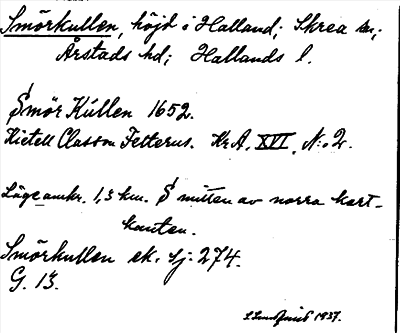 Smörkullen, höjd i Halland; Skrea sn;
Årstads hd; Hallands l.
Smör Kúllen 1652.
Kietell Classon Felterus. Kr.A. XVI, N:o 2.
Läge omkr. 1,3 km. S mitten av norra kart-
kanten.
Smörkullen ek. Sj. 274.
G. 13.
1937.